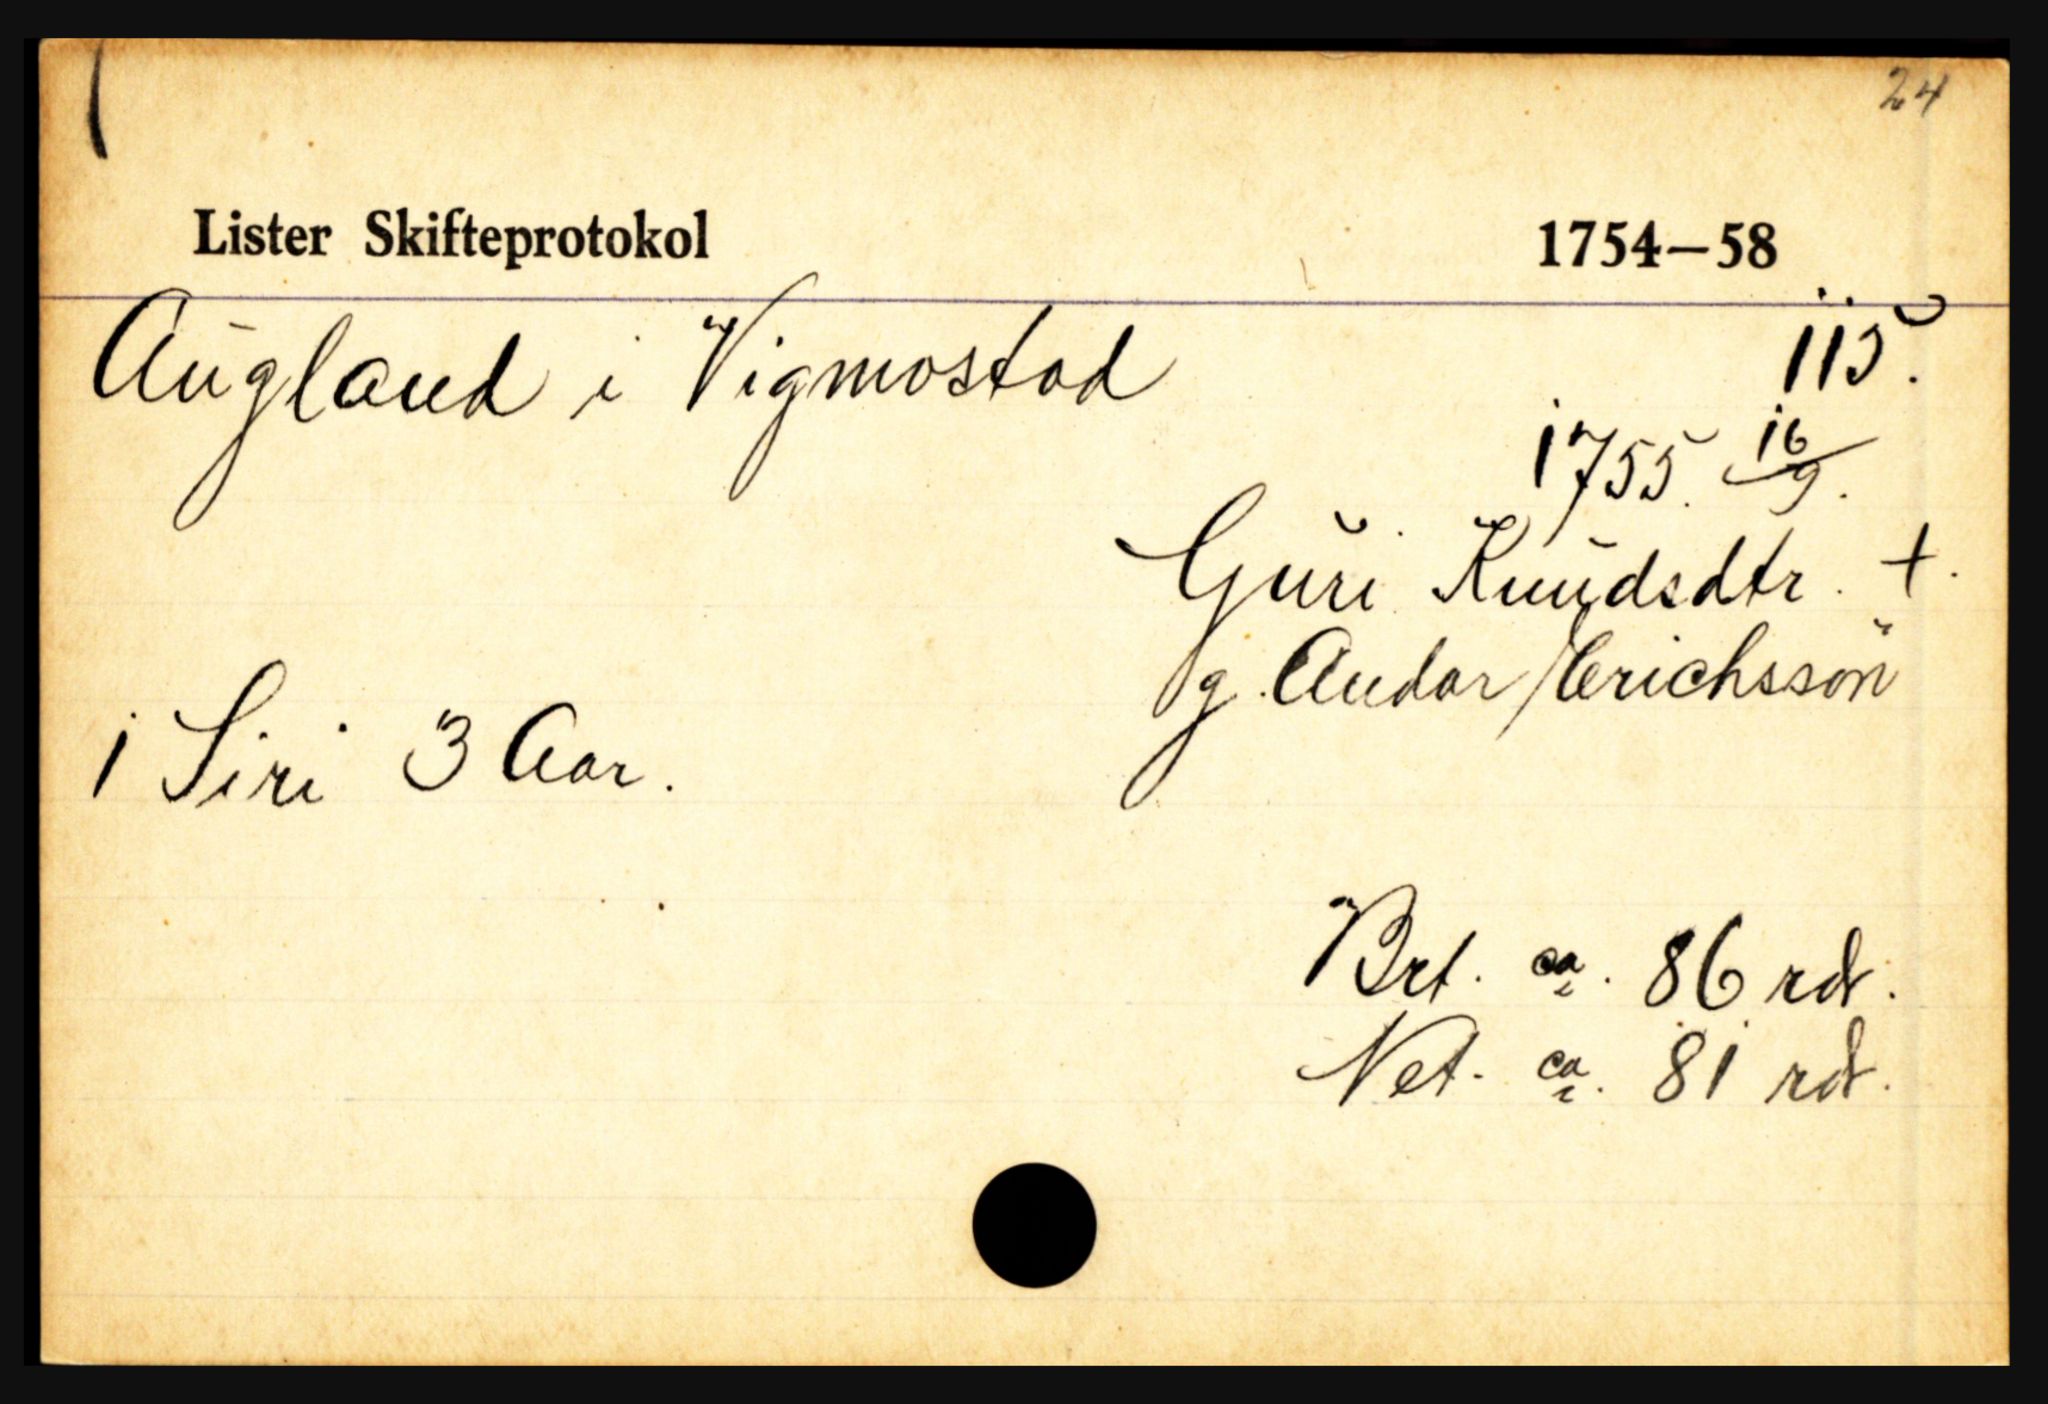 24
Lister Skifteprotokol 1754–58
Augland i Vigmostad 115.
1755. 16/9.
Guri Knudsdtr. +.
g. Andor Erichssön
1 Siri 3 Aar.
Brt. ca. 86 rdr.
Net. ca. 81 rdr.